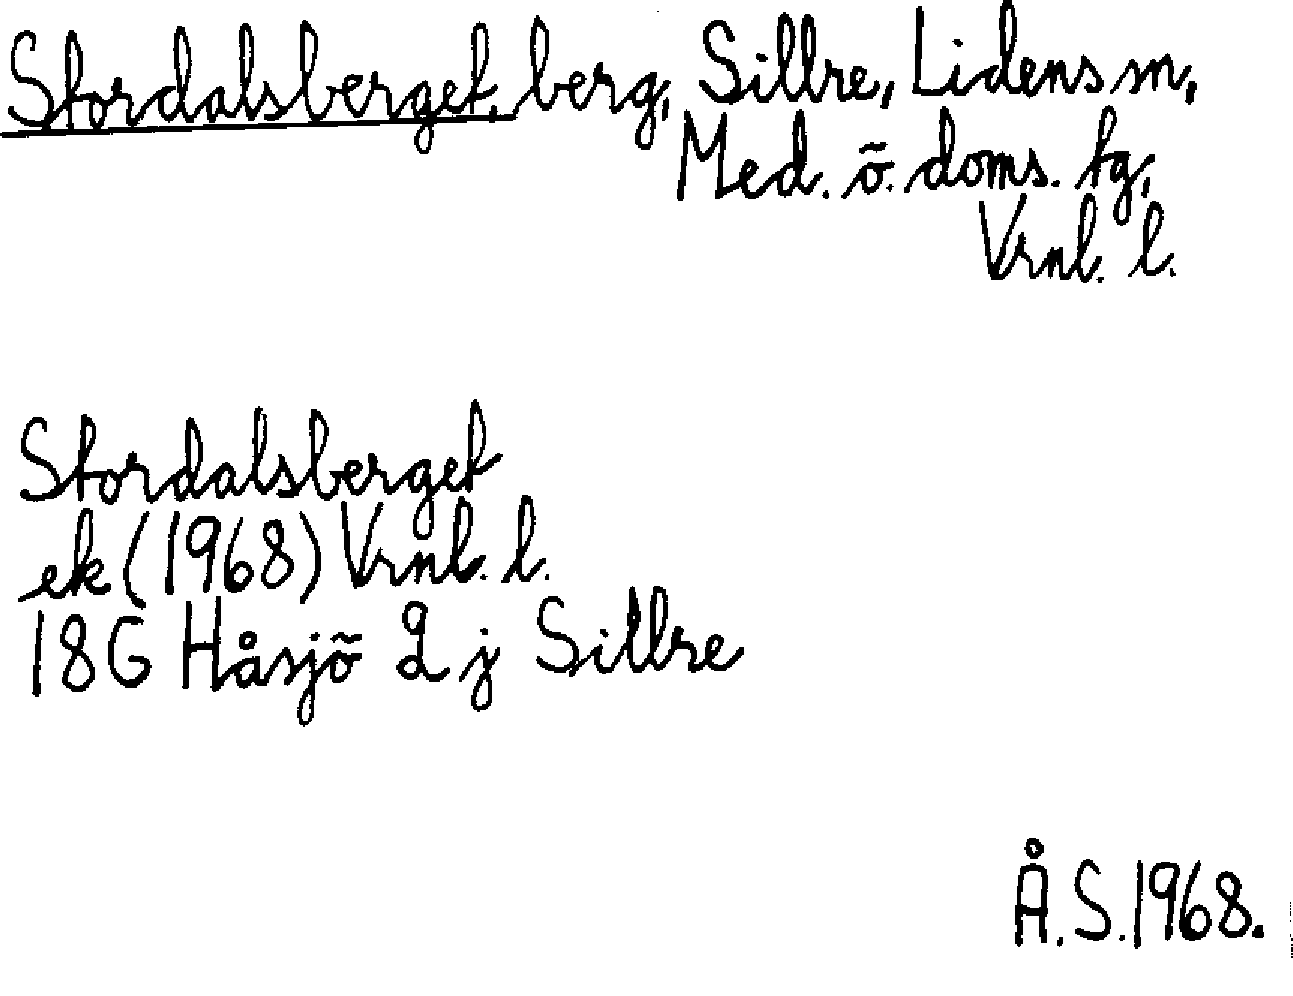 Stordalsberget, berg, Sillre, Lidens sn,
Med. ö. doms. tg,
Vrnl. l.
Stordalsberget
ek (1968) Vrnl. l.
18G Håsjö 2 j Sillre
Å.S.1968.